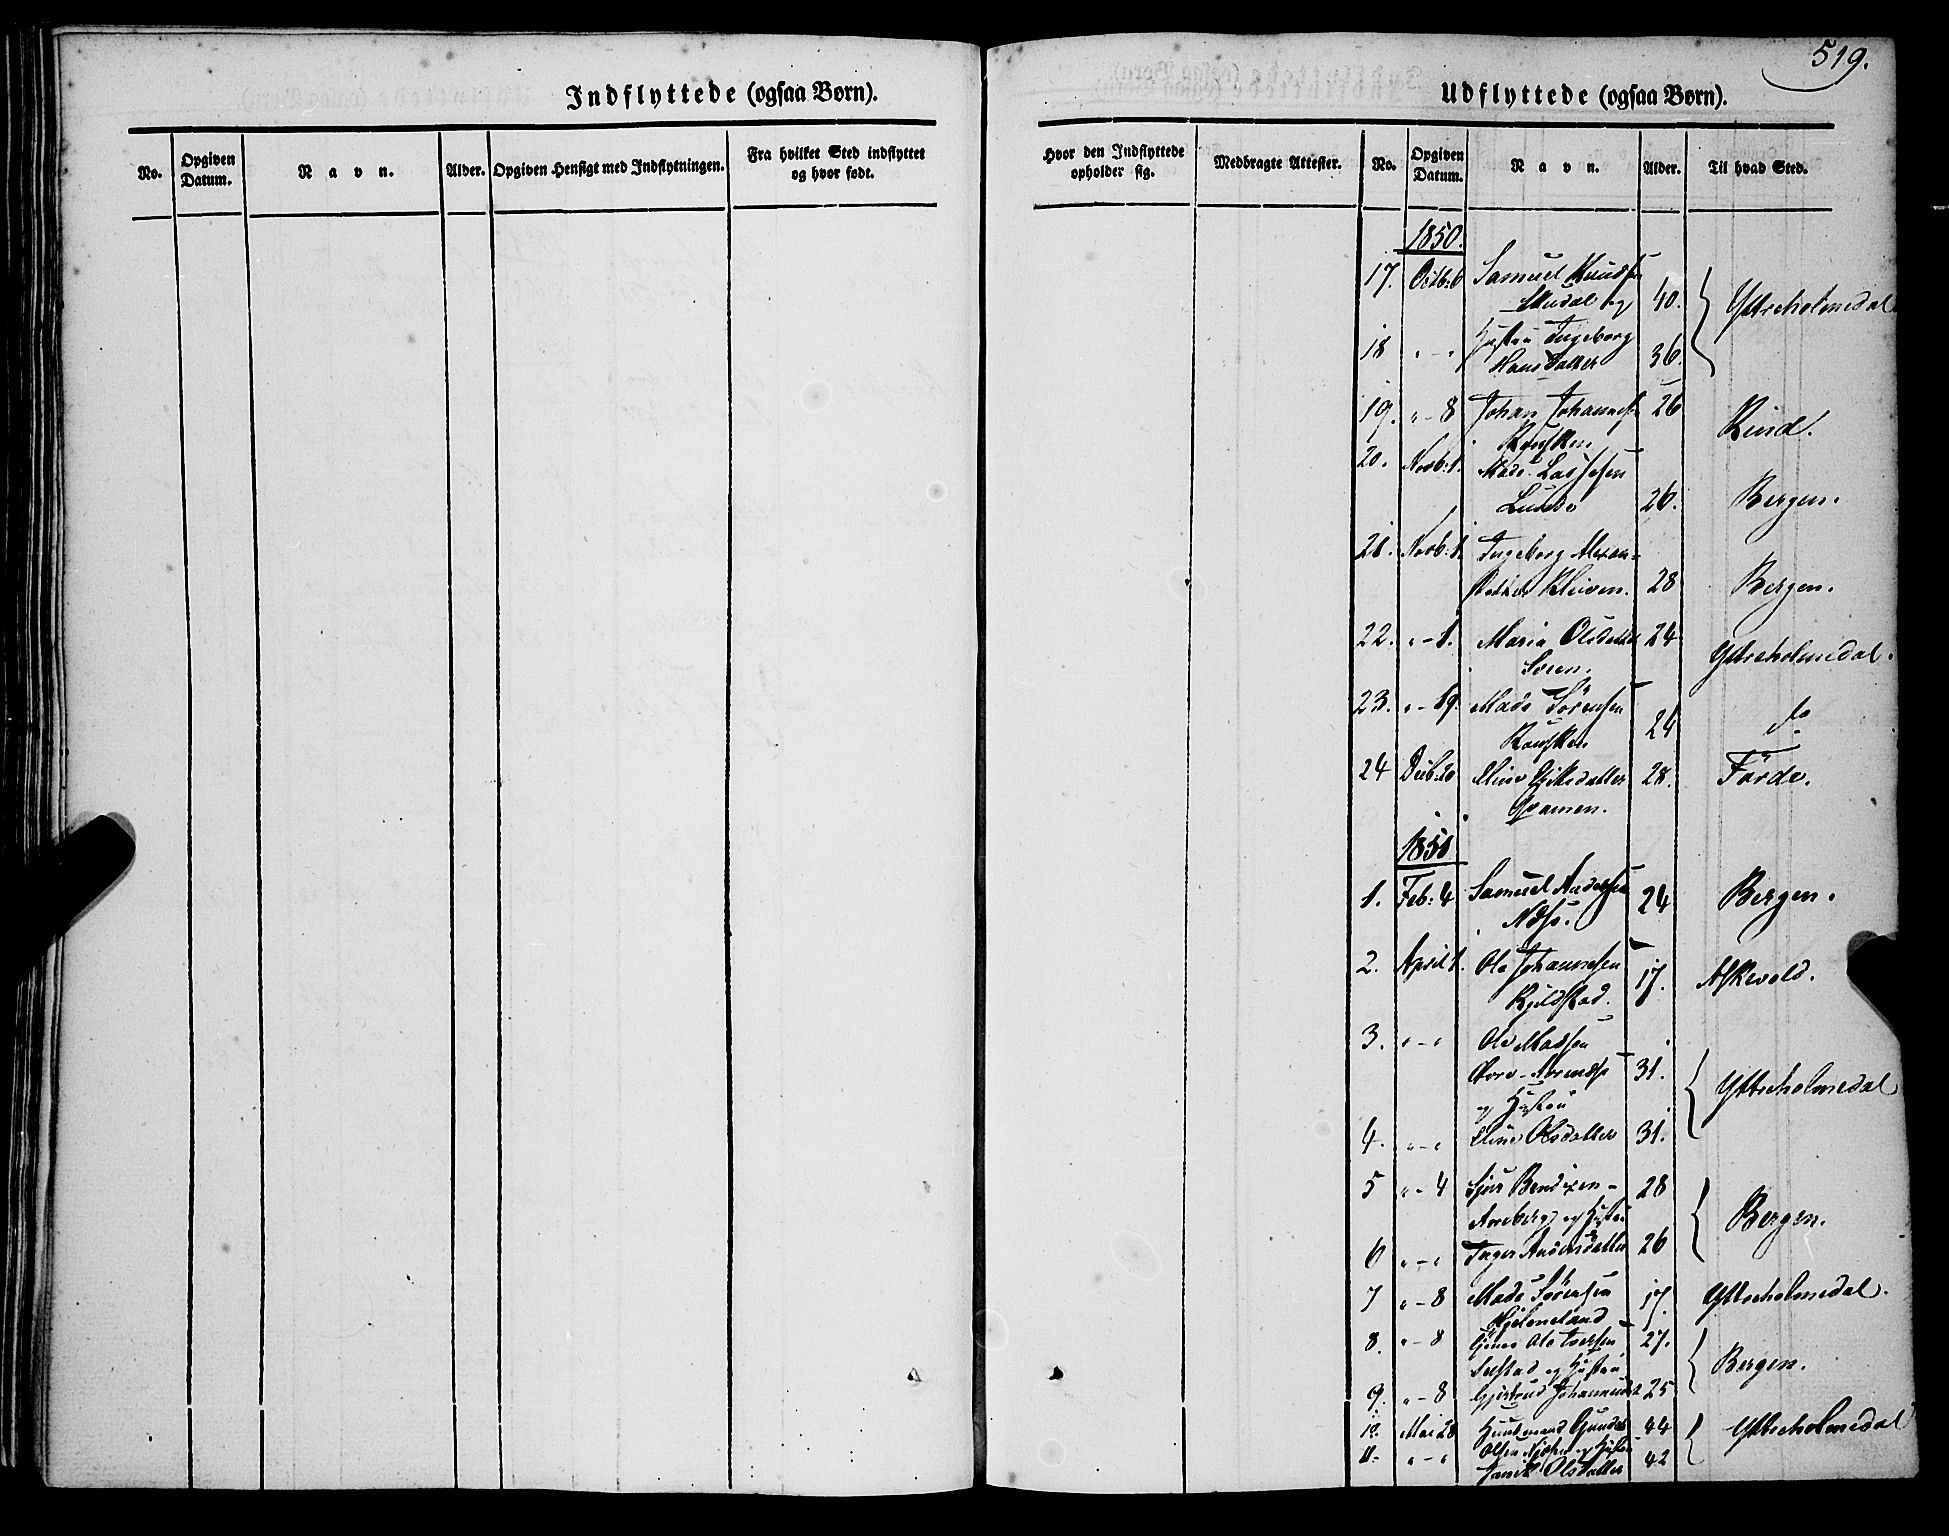 519.
Indflyttede (ogsaa Børn).
Udflyttede (ogsaa Børn).
No. Opgiven Datum. Navn. Alder. Opgiven Hensigt med Indflytningen. Fra hvilket Sted indflyttet og hvor født.
Hvor den Indflyttede opholder sig. Medbragte Attester. No. Opgiven Datum. Navn. Alder. Til hvad Sted.
1850.
17. Octb: 6 Samuel Knuds
og 40. Yttreholmedal
18 " - " Hustru Ingeborg
Hansdatter 36.
19. " - 8 Johan Johannes 26 Kind.
20. Novb: 1. Mads Lassesen
Lunde 26. Bergen.
21. Novb: 1. Ingeborg Alexan-
Kleiven. 28 Bergen.
22. " - 1. Maria Olsdatter 24 Yttreholmedal.
23. " - 19. Mads Sørensen
24 do
24 Decb: 20 Eline 28. Förde.
Qvamen.
1851
1. Feb: 4 Samuel Andersen 24 Bergen.
2. April 1. Ole Johannesen
Kjelstad. 17. Askevold.
3. " - " Ole Madsen
31. Yttreholmedal
og Hustru
4. " - " Eline Olsdatter 31.
5 " - 4 Sjur Bendixen - 28
Aareberg og Hustru Bergen.
6 " - " Inger Andersdatter 26
7 " - 8 Mads Sörensen 17. Yttreholmedal.
Hjelmeland
8. " - 8 Ole Iversen 27.
og Hustru Bergen.
9. " - 8 Gjertrud Johannesd 25
10. Mai 28 Huusmand 44 Yttreholmedal
Olsen og Hustru
11. " - " Olsdatter 42